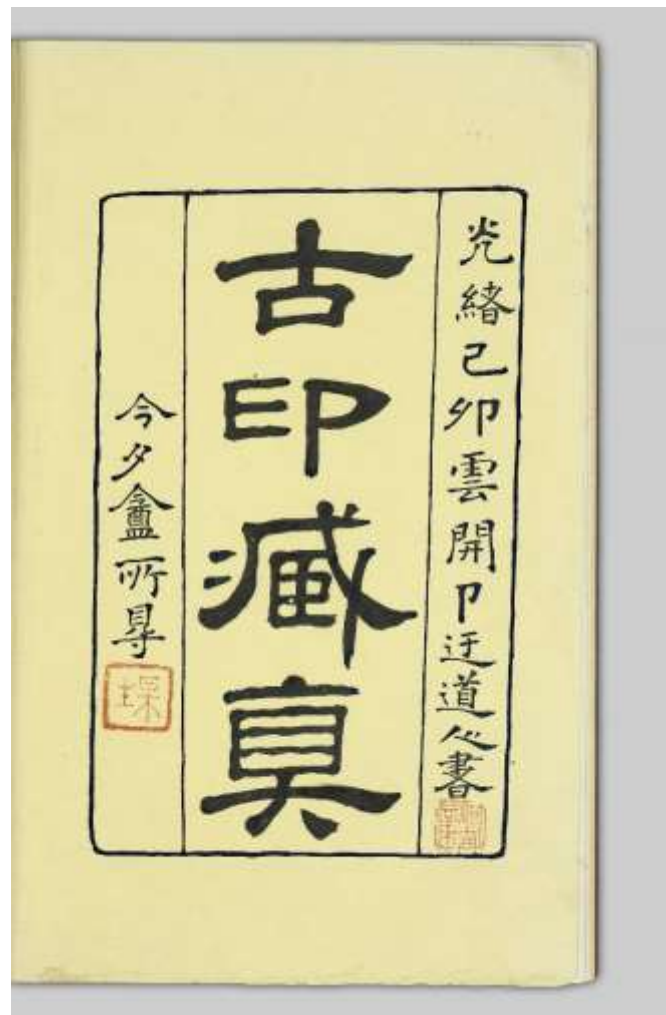 光緒己卯雲開卩迂道人書
古印藏真
今夕盦所㝵